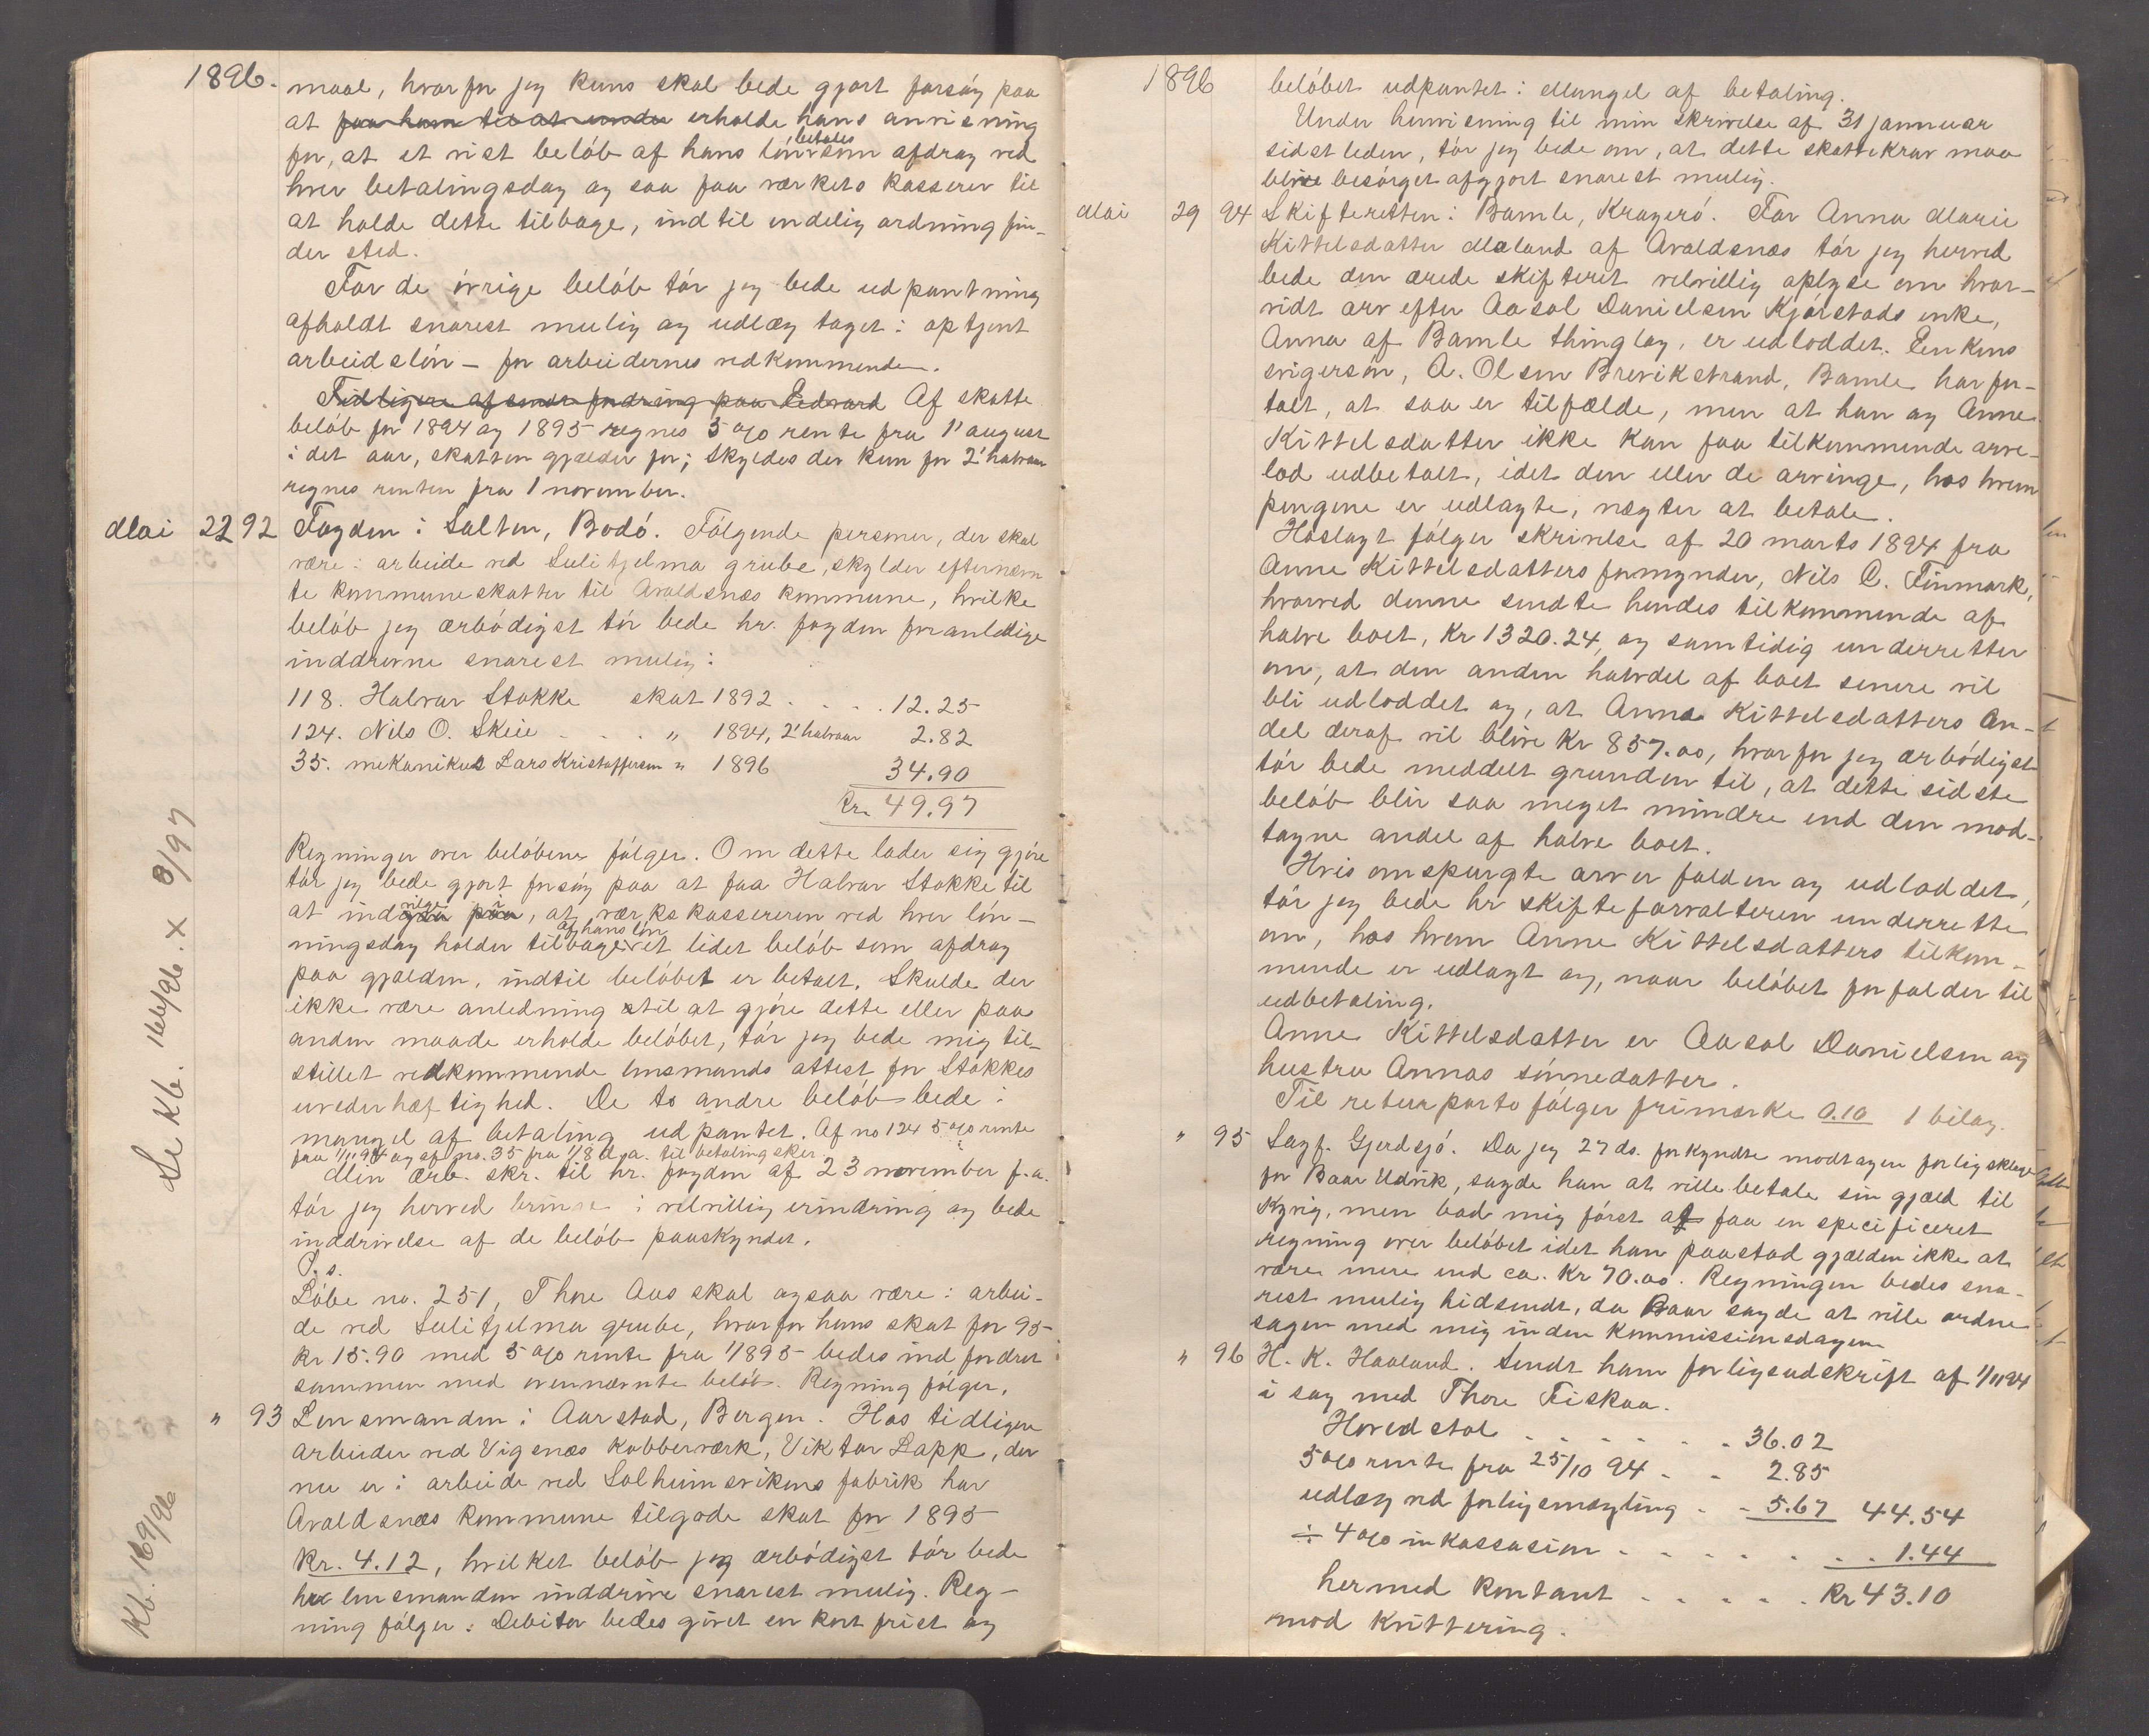 1896.
maal, hvorfor jeg kuns skal bede gjort forsøg paa
at faa ham til at erholde hans anvisning
for, at et vist beløb af hans løn betales som afdrag ved
hver betalingsdag og saa faa værkets kasserer til
at holde dette tilbage, indtil endelig ordning fin-
der sted.
For de øvrige beløb tør jeg bede udpantning
afholdt snarest mulig og udlæg taget i optjent
arbeidsløn – for arbeidernes vedkommende.
Tidligere afsendt fordring paa Edvard Af skatte
beløb for 1894 og 1895 regnes 5 % rente fra 1' august
i det aar, skatten gjælder for; skyldes der kun for 2' halvaar
regnes renten fra 1 november.
Mai 22 92 Fogden i Salten, Bodø. Følgende personer, der skal
være i arbeide ved Sulitjelma grube, skylder efternævn
te kommuneskatter til Avaldsnæs kommune, hvilke
beløb jeg ærbødigst tør bede hr. fogden foranledige
inddrevne snarest mulig:
118. Halvar Stokke skat 1892 . . . . 12.25
124. Nils O. Skeie . . . " 1894, 2' halvaar 2.82
35. mekanikus Lars Kristoffersen " 1896 34.90
Kr. 49.97
Regninger over beløbene følger. Om dette lader sig gjøre
tør jeg bede gjort forsøg paa at faa Halvar Stokke til
at indvilge , at værkskassereren ved hver løn-
ningsdag holder tilbage af hans løn et lidet beløb som afdrag
paa gjælden, indtil beløbet er betalt. Skulde der
ikke være anledning til at gjøre dette eller paa
anden maade erholde beløbet, tør jeg bede mig til-
stillet vedkommende lensmands attest for Stokkes
uvederhæftighed. De to andre beløb bede i
mangel af betaling udpantet. Af no 124 5 % rente
fra 1/11 94 og af no. 35 fra 1/8 d.a. til betaling sker.
Min ærb. skr. til hr. fogden af 23 november f.a.
tør jeg herved bringe i velvillig erindring og bede
inddrivelse af de beløb paaskyndet.
P.s.
Løbe no. 251, Thore Aas skal ogsaa være i arbei-
de ved Sulitjelma grube, hvorfor hans skat for 95
Kr 15.90 med 5 % rente fra 1/8 95 bedes indfordret
sammen med ovennævnte beløb. Regning følger.
" 93 Lensmanden i Aarstad, Bergen. Hos tidligere
arbeider ved Vigsnæs Kobberværk, Viktor Lapp, der
nu er i arbeide ved Solheimsvikens fabrik har
Avaldsnæs kommune tilgode skat for 1895
Kr. 4.12, hvilket beløb jeg ærbødigst tør bede
hr lensmanden inddrive snarest mulig. Reg-
ning følger. Debitor bedes givet en kort frist og
Se Kb. 166/96. x 8/97
Kb. 169/96
1896
beløbet udpantet i Mangel af betaling.
Under henvisning til min skrivelse af 31 januar
sidstleden, tør jeg bede om, at dette skattekrav maa
blive besørget afgjort snarest mulig.
Mai 29 94 Skifteretten i Bamle, Kragerø. For Anna Marie
Kittelsdatter Maland af Avaldsnæs tør jeg herved
bede den ærede skifteret velvillig oplyse om hvor-
vidt arv efter Aasol Danielsen Kjørstads enke,
Anna af Bamle thinglag, er udloddet. Enkens
svigersøn, A. Olsen Brevikstrand, Bamle har for-
talt, at saa er tilfælde, men at han og Anne
Kittelsdatter ikke kan faa tilkommende arve-
lod udbetalt, idet den eller de arvinge, hos hvem
pengene er udlagte, nægter at betale.
Hoslagt følger skrivelse af 20 marts 1894 fra
Anne Kittelsdatters formynder, Nils C. Finmark,
hvorved denne sendte hendes tilkommende af
halve boet, Kr 1320.24, og samtidig underretter
om, at den anden halvdel af boet senere vil
bli udloddet og, at Anna Kittelsdatters an-
del deraf vil blive Kr 857.00, hvorfor jeg ærbødigst
tør bede meddelt grunden til, at dette sidste
beløb blir saa meget mindre end den mod-
tagne andel af halve boet.
Hvis omspurgte arv er falden og udloddet,
tør jeg bede hr skifteforvalteren underrette
om, hos hvem Anne Kittelsdatters tilkom-
mende er udlagt og, naar beløbet forfalder til
udbetaling.
Anne Kittelsdatter er Aasol Danielsen og
hustru Annas sønnedatter.
Til returporto følger frimærke 0.10 1 bilag.
" 95 Sagf. Gjerdsjø. Da jeg 27 ds. forkyndte modtagen forligsklage
for Baar Udvik, sagde han at ville betale sin gjæld til
Kyvig, men bad mig først at faa en specificeret
regning over beløbet idet han paastod gjælden ikke at
være mere end ca. Kr 70.00. Regningen bedes sna-
rest mulig hidsendt, da Baar sagde at ville ordne
sagen med mig inden kommissionsdagen
" 96 H. K. Haaland. Sendt ham forligsudskrift af 1/11 94
i sag med Thore Fiskaa.
Hovedstol . . . . . . 36.02
5 % rente fra 25/10 94 . . 2.85
udlæg ved forligsmægling . . 5.67 44.54
÷ 4 % inkassasion . . . . . . . 1.44
hermed kontant . . . . . Kr 43.10
mod kvittering.